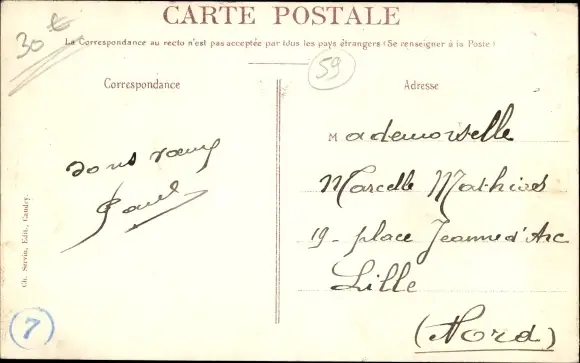 CARTE POSTALE
La Correspondance au recto n'est pas acceptée par tous les pays étrangers (Se renseigner à la Poste)
30 €
59
Correspondance
Adresse
Bons vœux
Paul
Mademoiselle
Marcelle Mathieu
19 - place Jeanne d'Arc
Lille
(Nord)
Ch. Servin, Édit., Caudry.
7